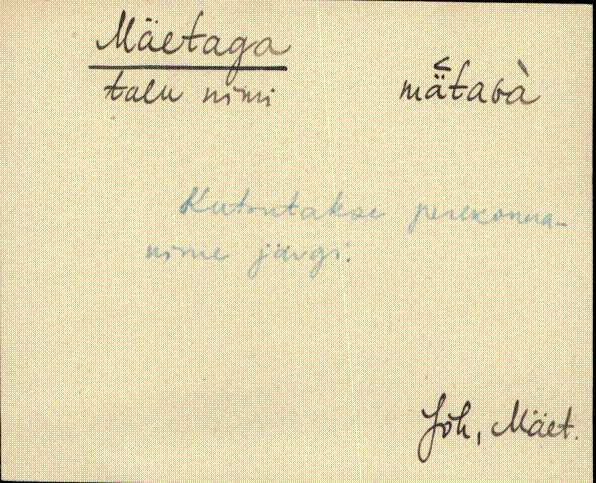 Mäetaga
talu nimi mä̆taɢà
Kutsutakse perekonna-
nime järgi.
Jõh, Mäet.